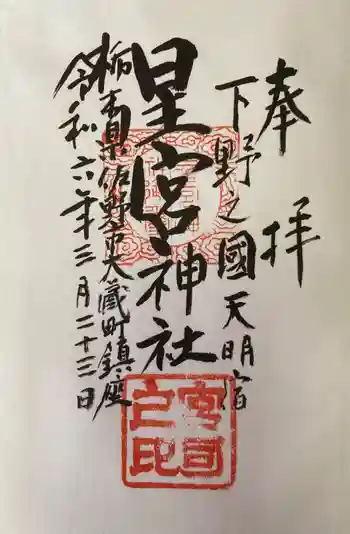 奉拝
下野之國天明宿
星宮神社
栃木県佐野市大蔵町鎮座
令和六年三月二十三日
宮司之印